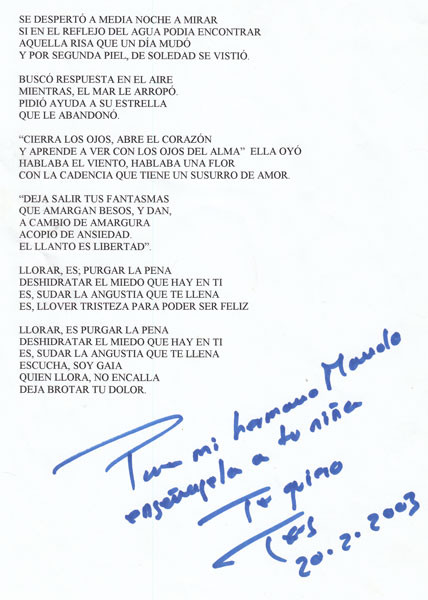 SE DESPERTÓ A MEDIA NOCHE A MIRAR
SI EN EL REFLEJO DEL AGUA PODIA ENCONTRAR
AQUELLA RISA QUE UN DÍA MUDÓ
Y POR SEGUNDA PIEL, DE SOLEDAD SE VISTIÓ.

BUSCÓ RESPUESTA EN EL AIRE
MIENTRAS, EL MAR LE ARROPÓ.
PIDIÓ AYUDA A SU ESTRELLA
QUE LE ABANDONÓ.

“CIERRA LOS OJOS, ABRE EL CORAZÓN
Y APRENDE A VER CON LOS OJOS DEL ALMA” ELLA OYÓ
HABLABA EL VIENTO, HABLABA UNA FLOR
CON LA CADENCIA QUE TIENE UN SUSURRO DE AMOR.

“DEJA SALIR TUS FANTASMAS
QUE AMARGAN BESOS, Y DAN,
A CAMBIO DE AMARGURA
ACOPIO DE ANSIEDAD.
EL LLANTO ES LIBERTAD”.

LLORAR, ES; PURGAR LA PENA
DESHIDRATAR EL MIEDO QUE HAY EN TI
ES, SUDAR LA ANGUSTIA QUE TE LLENA
ES, LLOVER TRISTEZA PARA PODER SER FELIZ

LLORAR, ES PURGAR LA PENA
DESHIDRATAR EL MIEDO QUE HAY EN TI
ES, SUDAR LA ANGUSTIA QUE TE LLENA
ESCUCHA, SOY GAIA
QUIEN LLORA, NO ENCALLA
DEJA BROTAR TU DOLOR.

Para mi hermano Mando
enséñasela a tu niña
Te quiero
Txus
20.2.2003